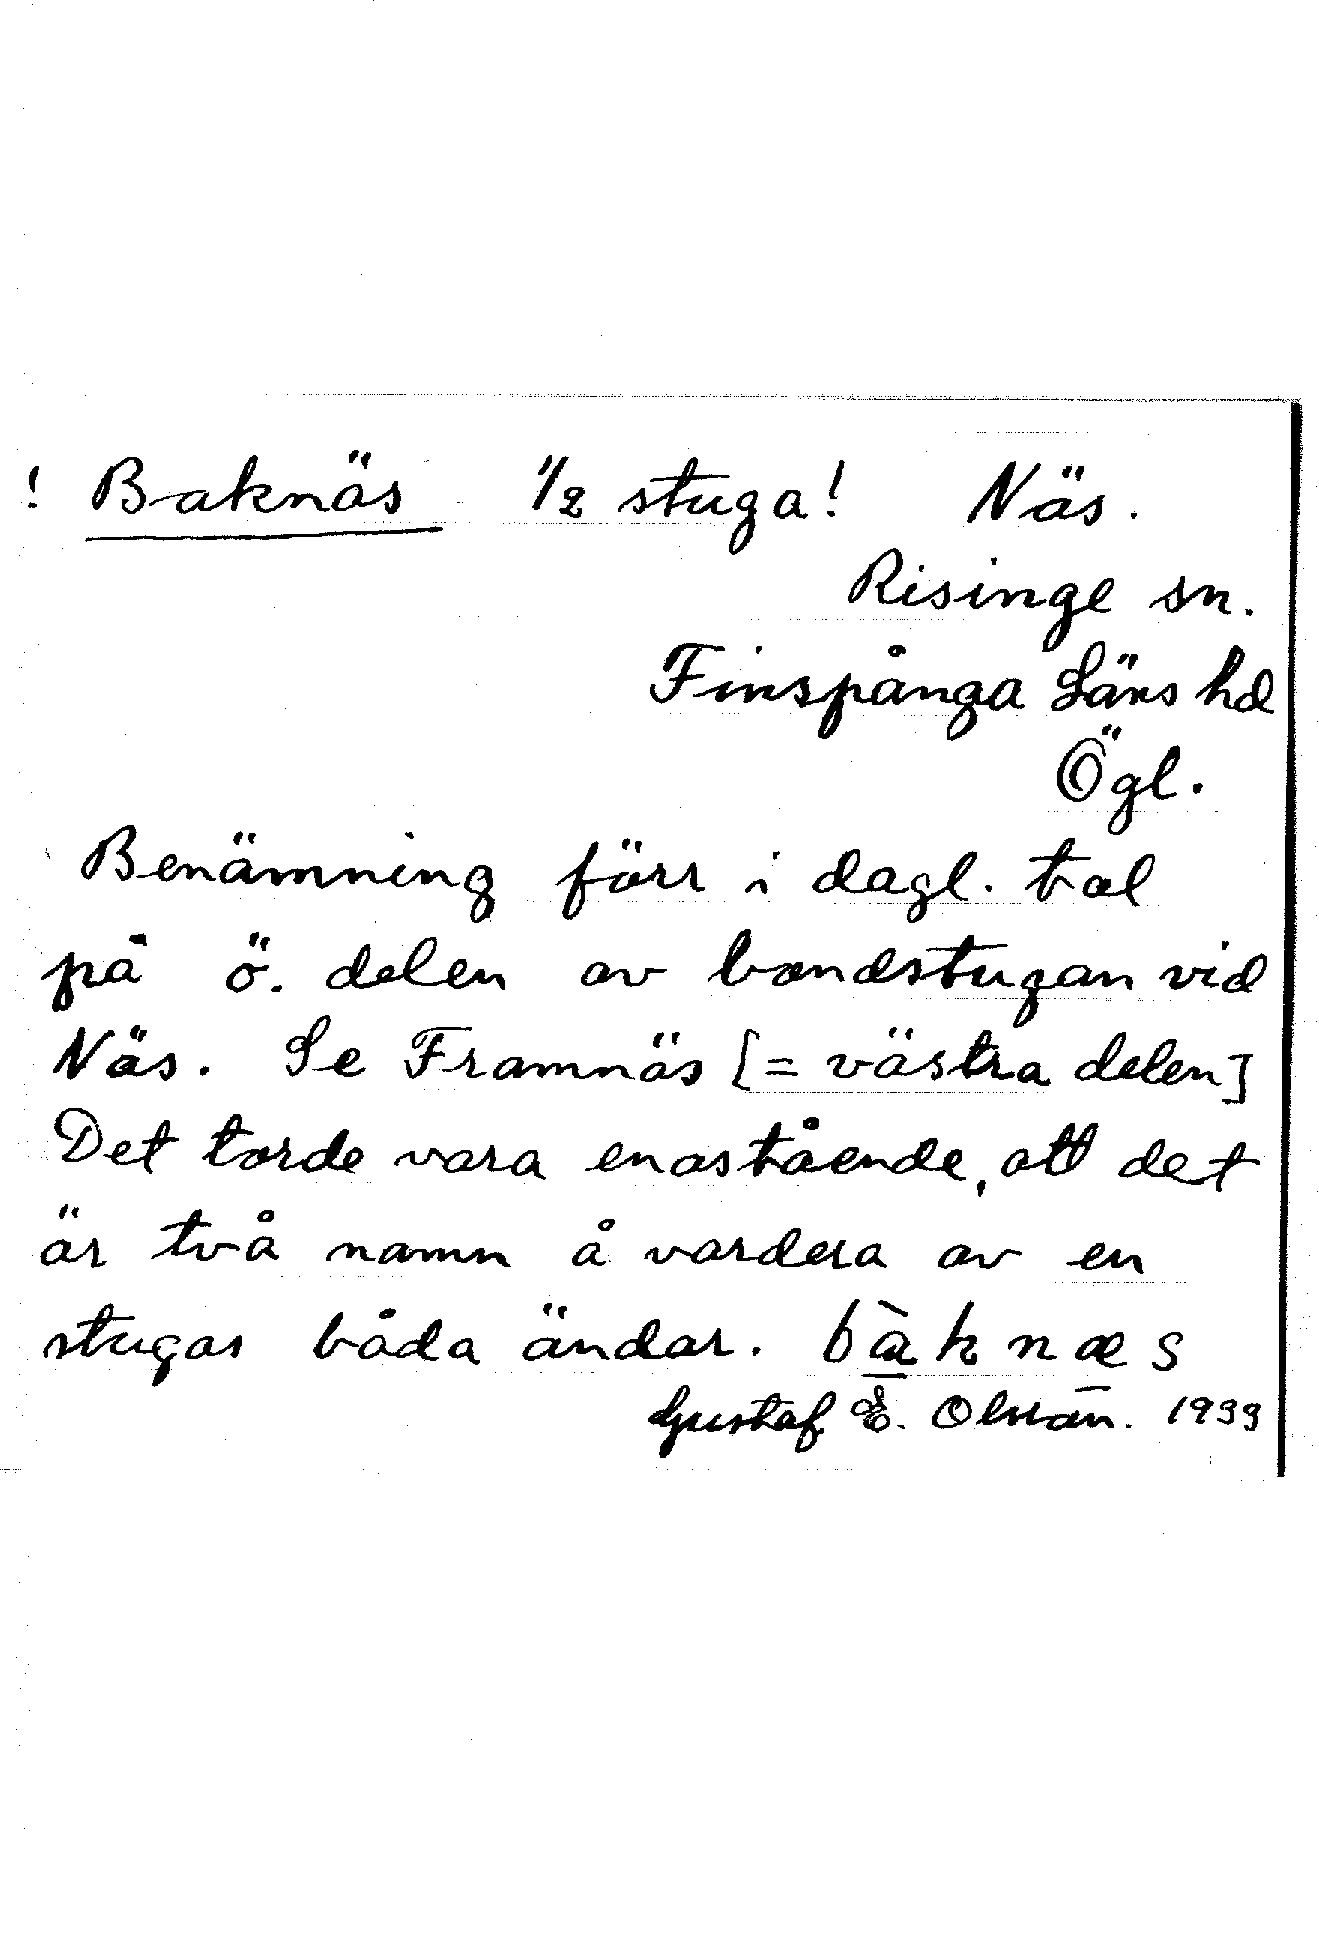 ! Baknäs 1/2 stuga! Näs.
Risinge sn.
Finspånga Läns hd
Ögl.
Benämning förr i dagl. tal
på ö. delen av bondstugan vid
Näs. Se Framnäs [= västra delen]
Det torde vara enastående, att det
är två namn å vardera av en
stugas båda ändar. bàknæs
Gustaf E. Olsson. 1933